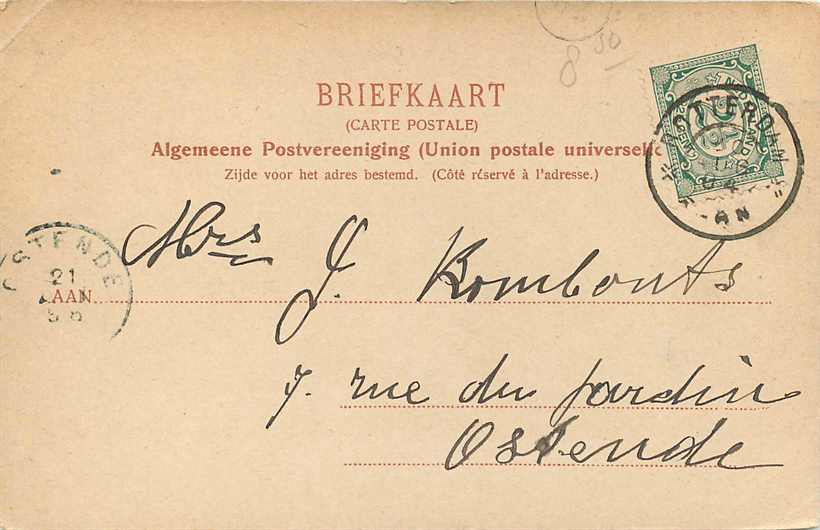 8 50
BRIEFKAART
(CARTE POSTALE)
Algemeene Postvereeniging (Union postale universelle)
Zijde voor het adres bestemd. (Côté réservé à l'adresse.)
ROTTERDAM
AN
2½
Mrs J. Rombouts
OSTENDE
21
AAN
7. rue du jardin
Ostende